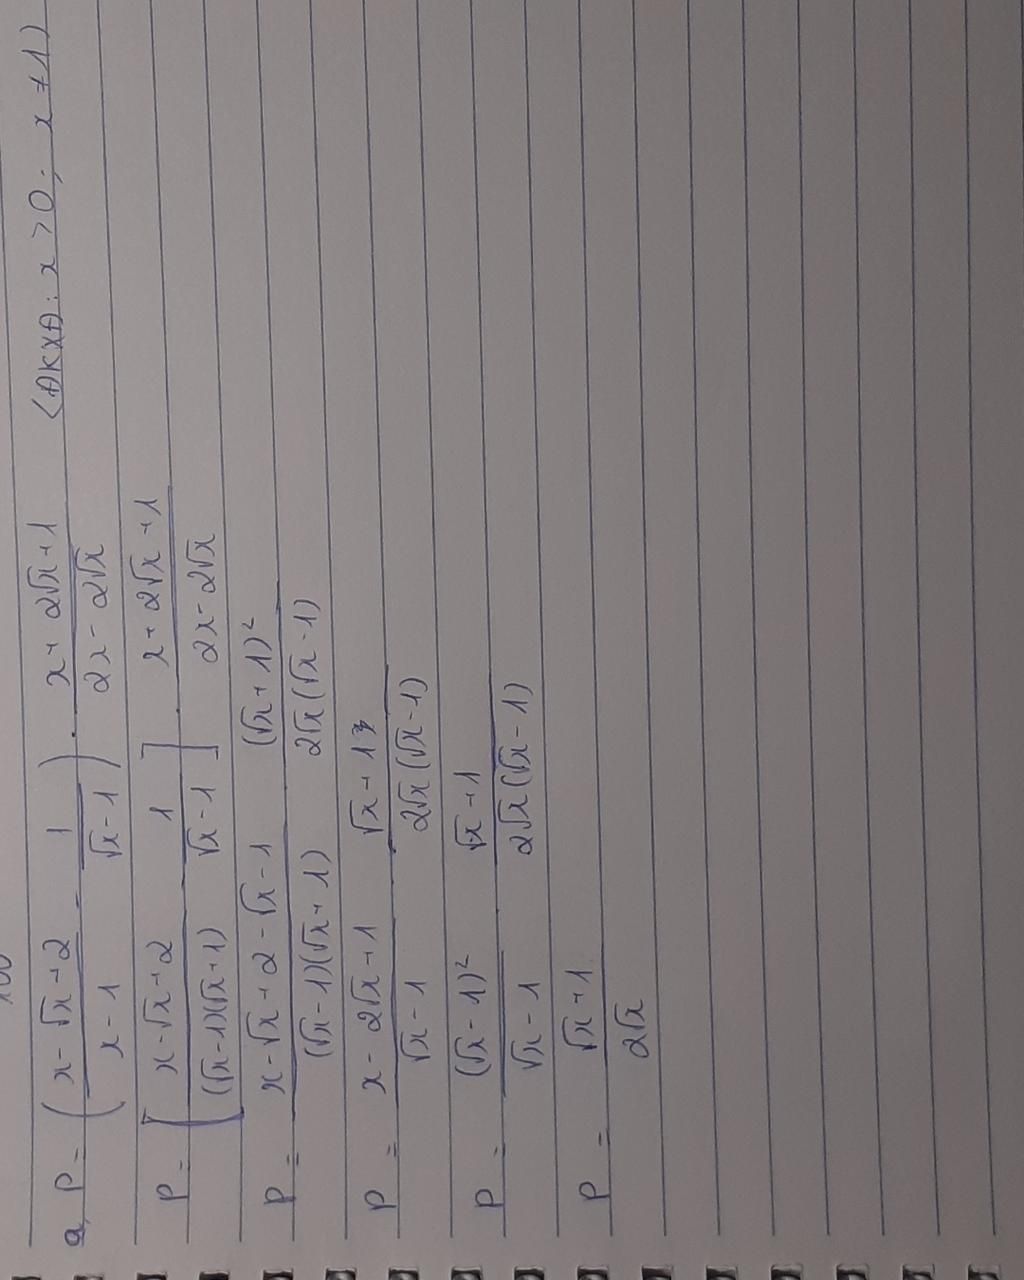 a, P = ( (x - √x + 2)/(x - 1) - 1/(√x - 1) ) . (x + 2√x + 1)/(2x - 2√x) (ĐKXĐ: x > 0; x ≠ 1)
P = [ (x - √x + 2)/((√x - 1)(√x + 1)) - 1/(√x - 1) ] . (x + 2√x + 1)/(2x - 2√x)
P = (x - √x + 2 - √x - 1)/((√x - 1)(√x + 1)) (√x + 1)²/(2√x(√x - 1))
P = (x - 2√x + 1)/(√x - 1) (√x + 1)/(2√x(√x - 1))
P = (√x - 1)²/(√x - 1) (√x + 1)/(2√x(√x - 1))
P = (√x + 1)/(2√x)